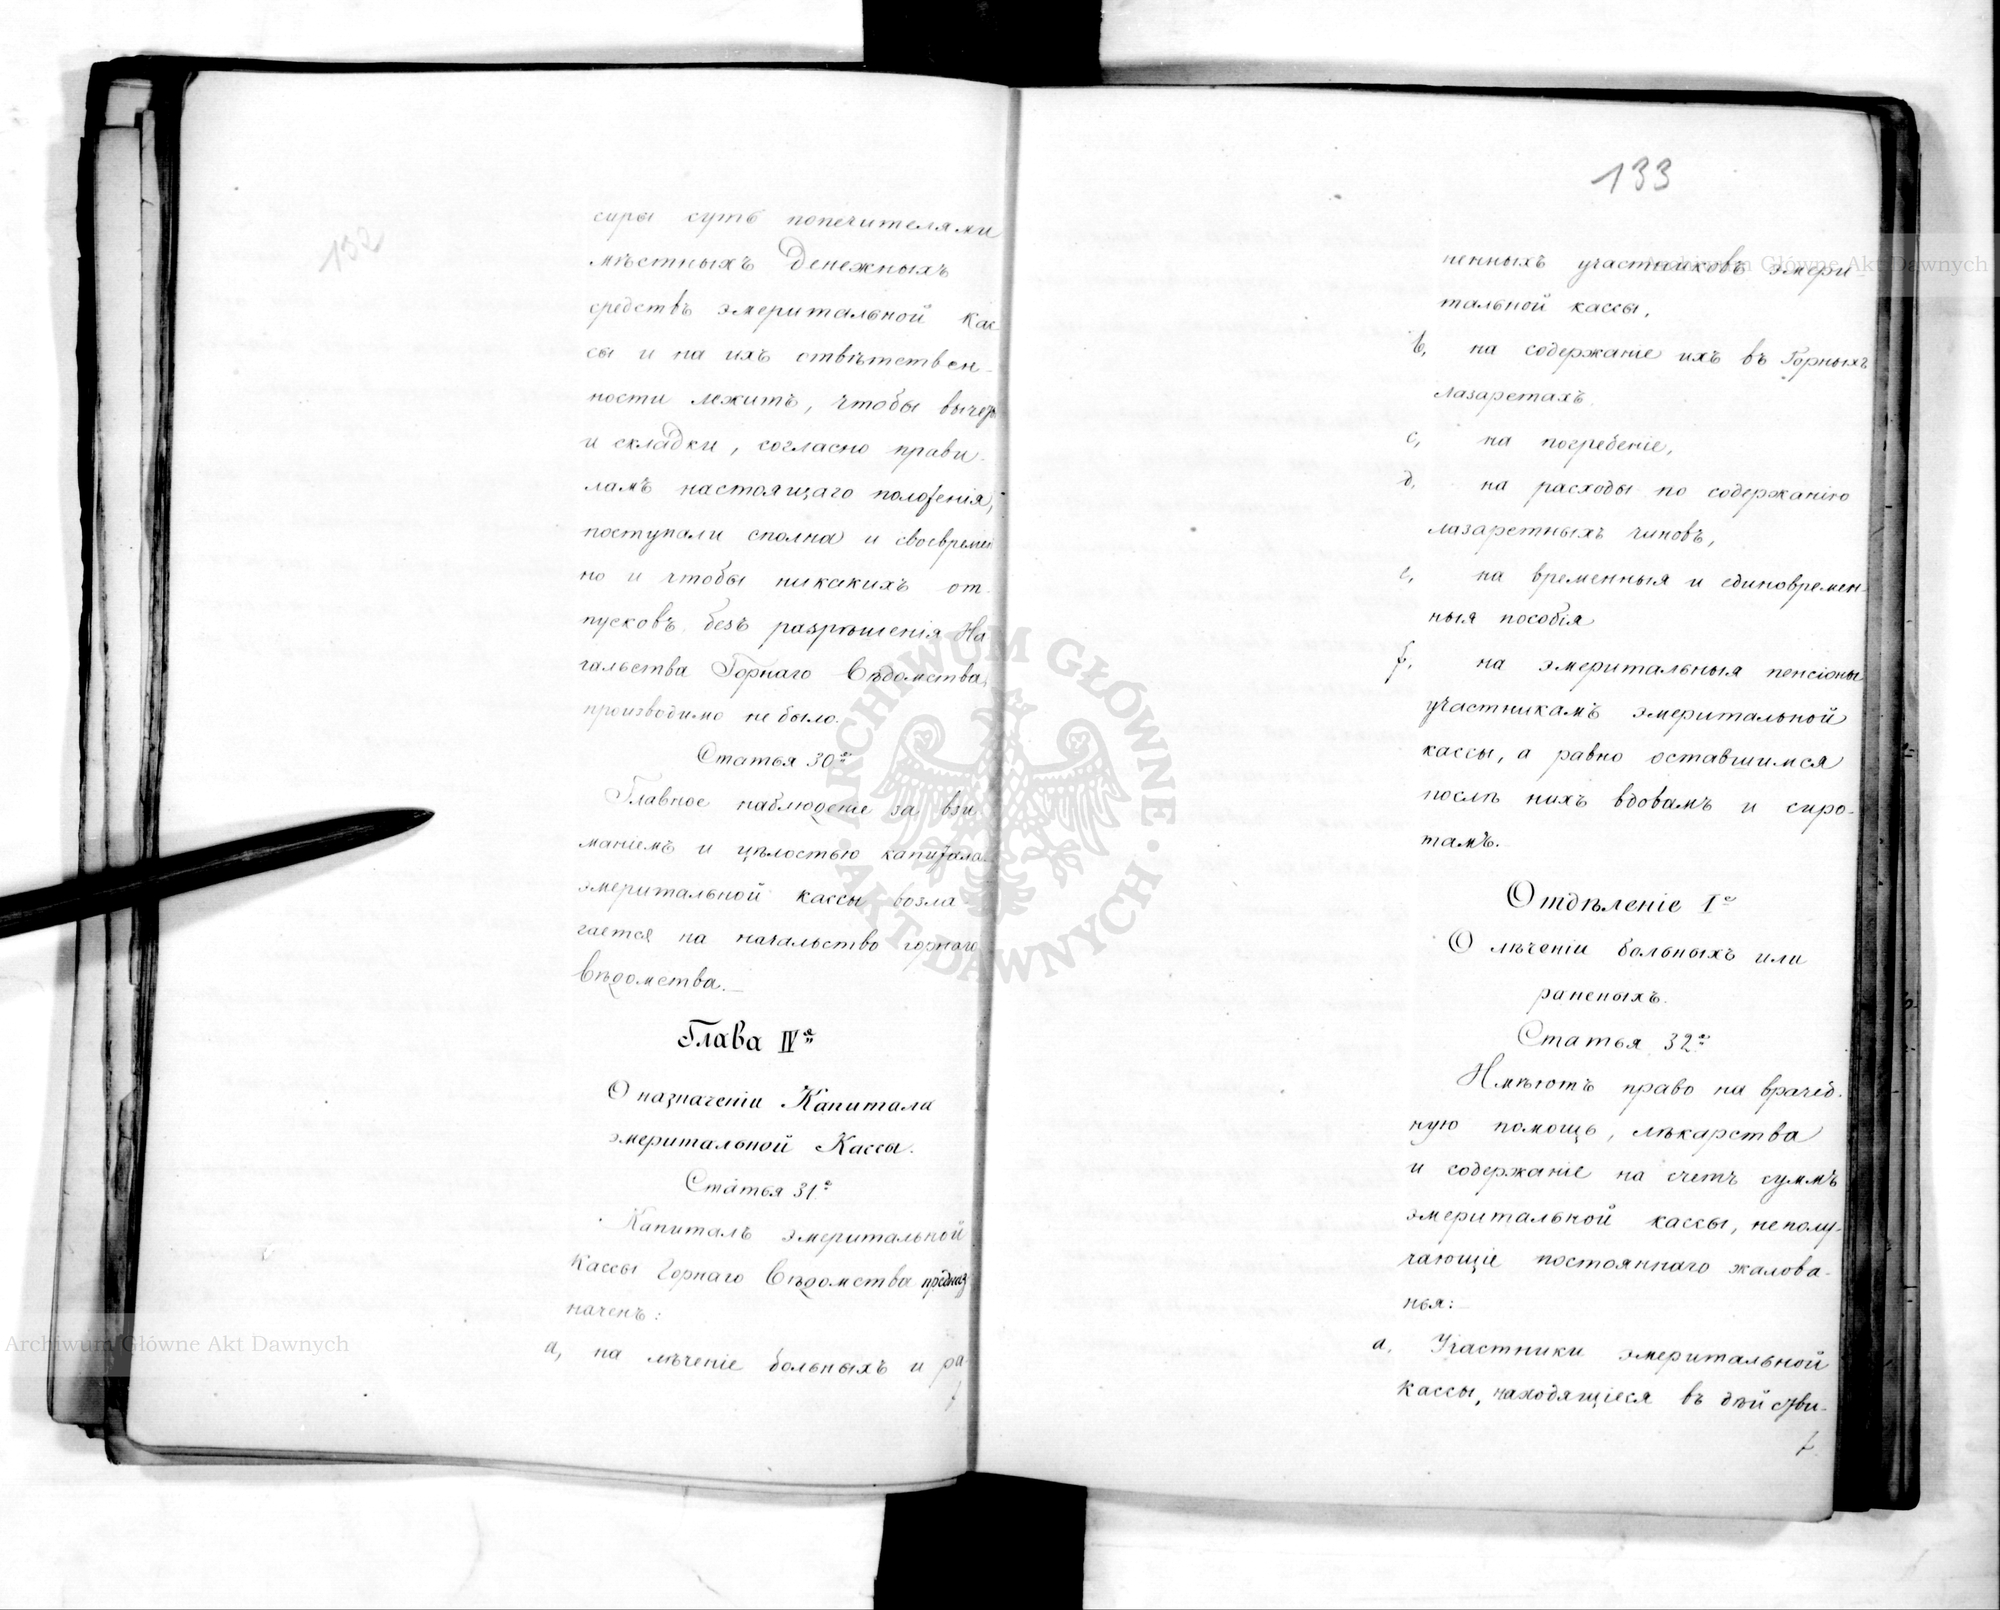 132
сиры суть попечителями
мѣстныхъ Денежныхъ
средствъ эмеритальной кас
сы и на ихъ отвѣтствен-
ности лежитъ, чтобы вычеты
и складки, согласно прави-
ламъ настоящаго положенія,
поступали сполна и своевремен
но и чтобы никакихъ от-
пусковъ безъ разрѣшенія На
чальства Горнаго Вѣдомства,
производимо не было.
Статья 30я
Главное наблюденіе за взи
маніемъ и цѣлостью капитала
эмеритальной кассы возла-
гается на начальство горнаго
Вѣдомства.—
Глава IVя
О назначеніи Капитала
эмеритальной Кассы.
Статья 31я
Капиталъ эмеритальной
Кассы Горнаго Вѣдомства предназ
наченъ:
a, на лѣченіе больныхъ и ра-
133
ненныхъ участниковъ эмери
тальной кассы,
b, на содержаніе ихъ въ Горныхъ
лазаретахъ
c, на погребеніе,
d, на расходы по содержанію
лазаретныхъ чиновъ,
e, на временныя и единовремен-
ныя пособія
f, на эмеритальныя пенсіоны
участникамъ эмеритальной
кассы, а равно оставшимся
послѣ нихъ вдовамъ и сиро-
тамъ.—
Отдѣленіе Iе
О лѣченіи больныхъ или
раненыхъ.
Статья 32я
Имѣютъ право на врачеб-
ную помощь, лѣкарства
и содержаніе на счетъ суммъ
эмеритальной кассы, неполу-
чающіе постояннаго жалова-
нья:—
a, Участники эмеритальной
Кассы, находящіеся въ дѣйстви-
Archiwum Główne Akt Dawnych
Archiwum Główne Akt Dawnych
ARCHIWUM GŁÓWNE · AKT DAWNYCH ·